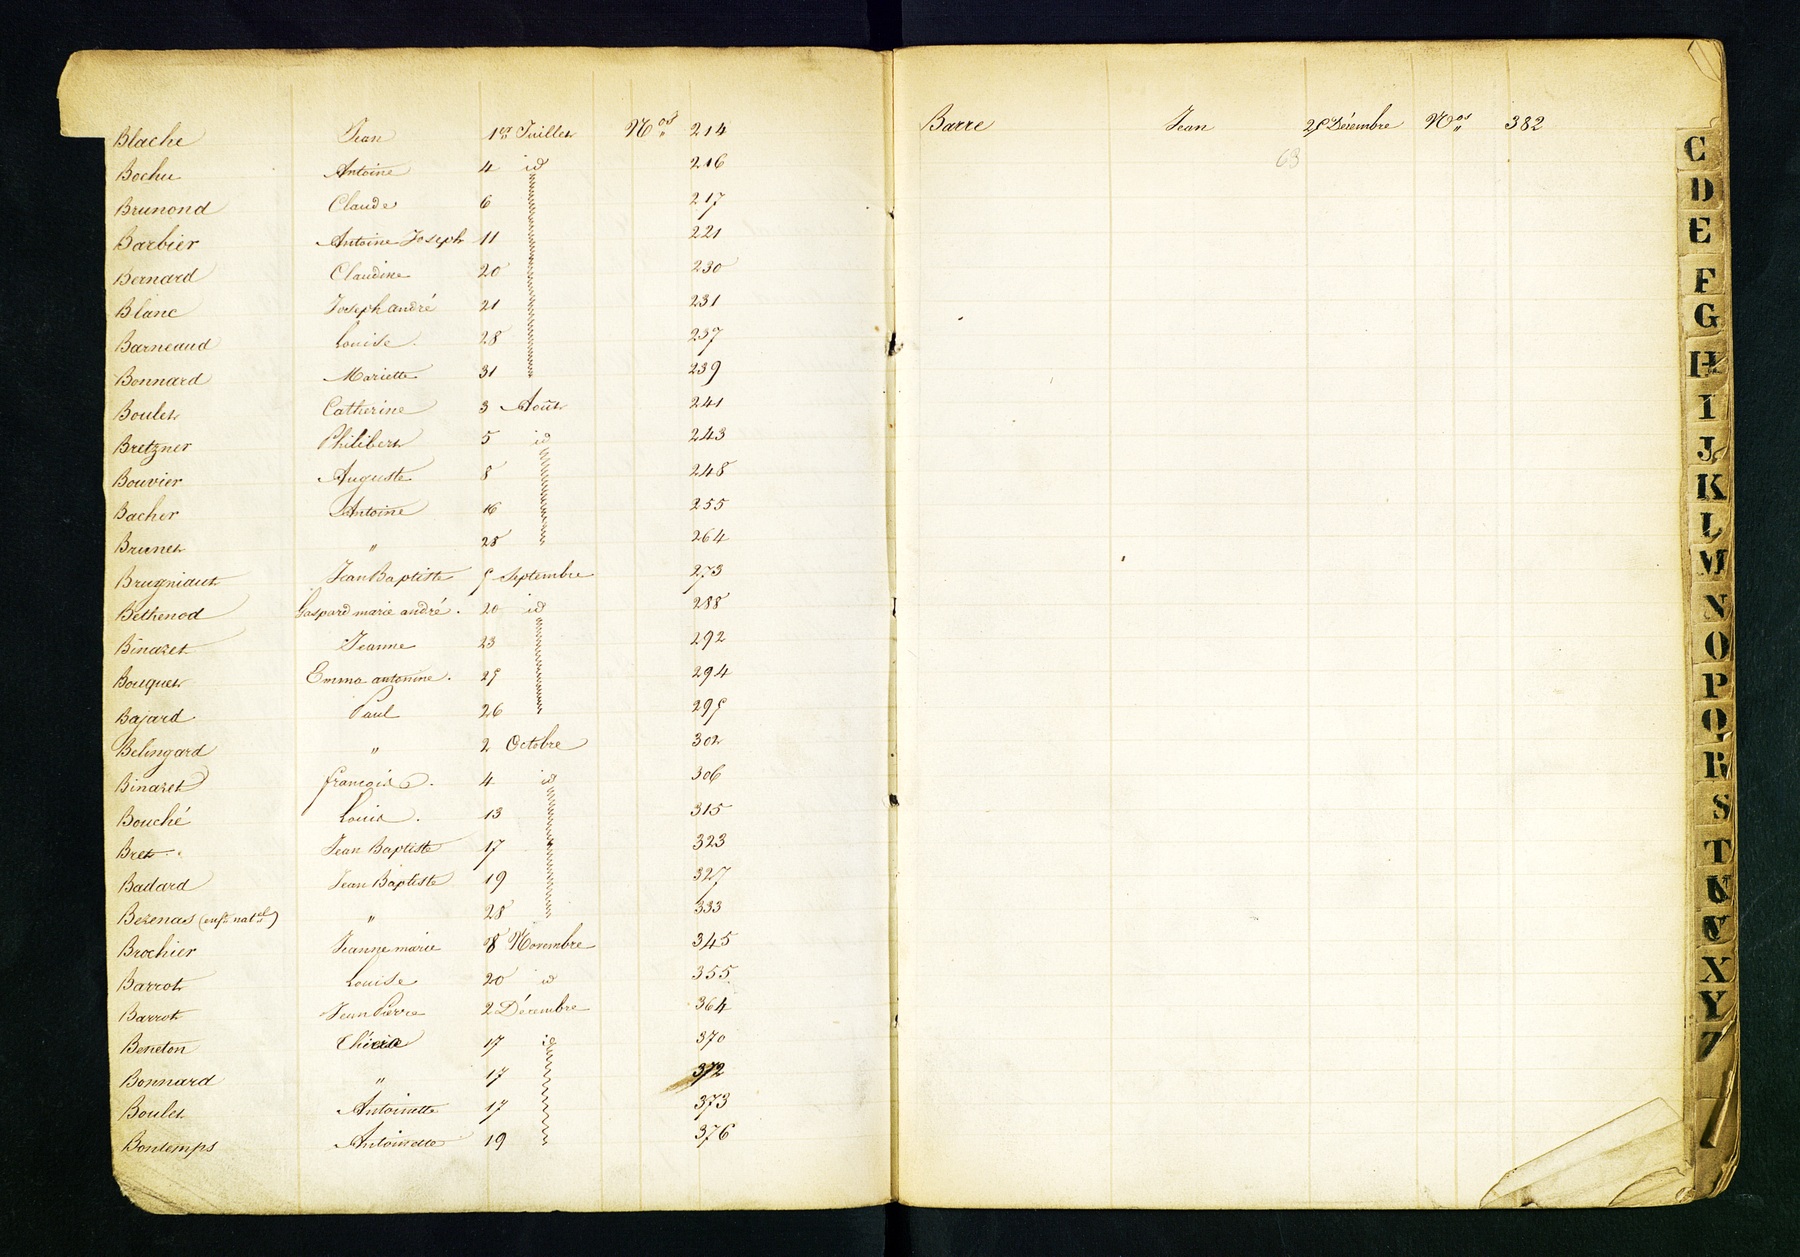 Blache Jean 1er Juillet Nos " 214
Bochu Antoine 4 id 216
Brunond Claude 6 217
Barbier Antoine Joseph 11 221
Bernard Claudine 20 230
Blanc Joseph andré 21 231
Barneaud Louise. 28 237
Bonnard Mariette 31 239
Boulet Catherine 3 Août 241
Bretzner Philibert 5 id 243
Bouvier Auguste 8 248
Bacher Antoine 16 255
Brunet " 28 264
Brugniaut Jean Baptiste 5 Septembre 273
Bethenod Gaspard marie andré. 20 id 288
Binazet Jeanne 23 292
Bouquet Emma antonine. 25 294
Bajard Paul 26 295
Belingard " 2 Octobre 302
Binazet françois. 4 id 306
Bouché Louis. 13 315
Bret Jean Baptiste 17 323
Badard Jean Baptiste 19 327
Bezenas (enft natel) " 28 333
Brochier Jeanne marie 8 Novembre 345
Barrot Louise 20 id 355
Barrot Jean Pierre 2 Décembre 364
Beneton 17 id 370
Bonnard " 17 372
Boulet Antoinette 17 373
Bontemps Antoinette 19 376
Barre Jean 25 Décembre Nos " 382
63
C
D
E
F
G
H
I
J
K
L
M
N
O
P
Q
R
S
T
X
Y
Z